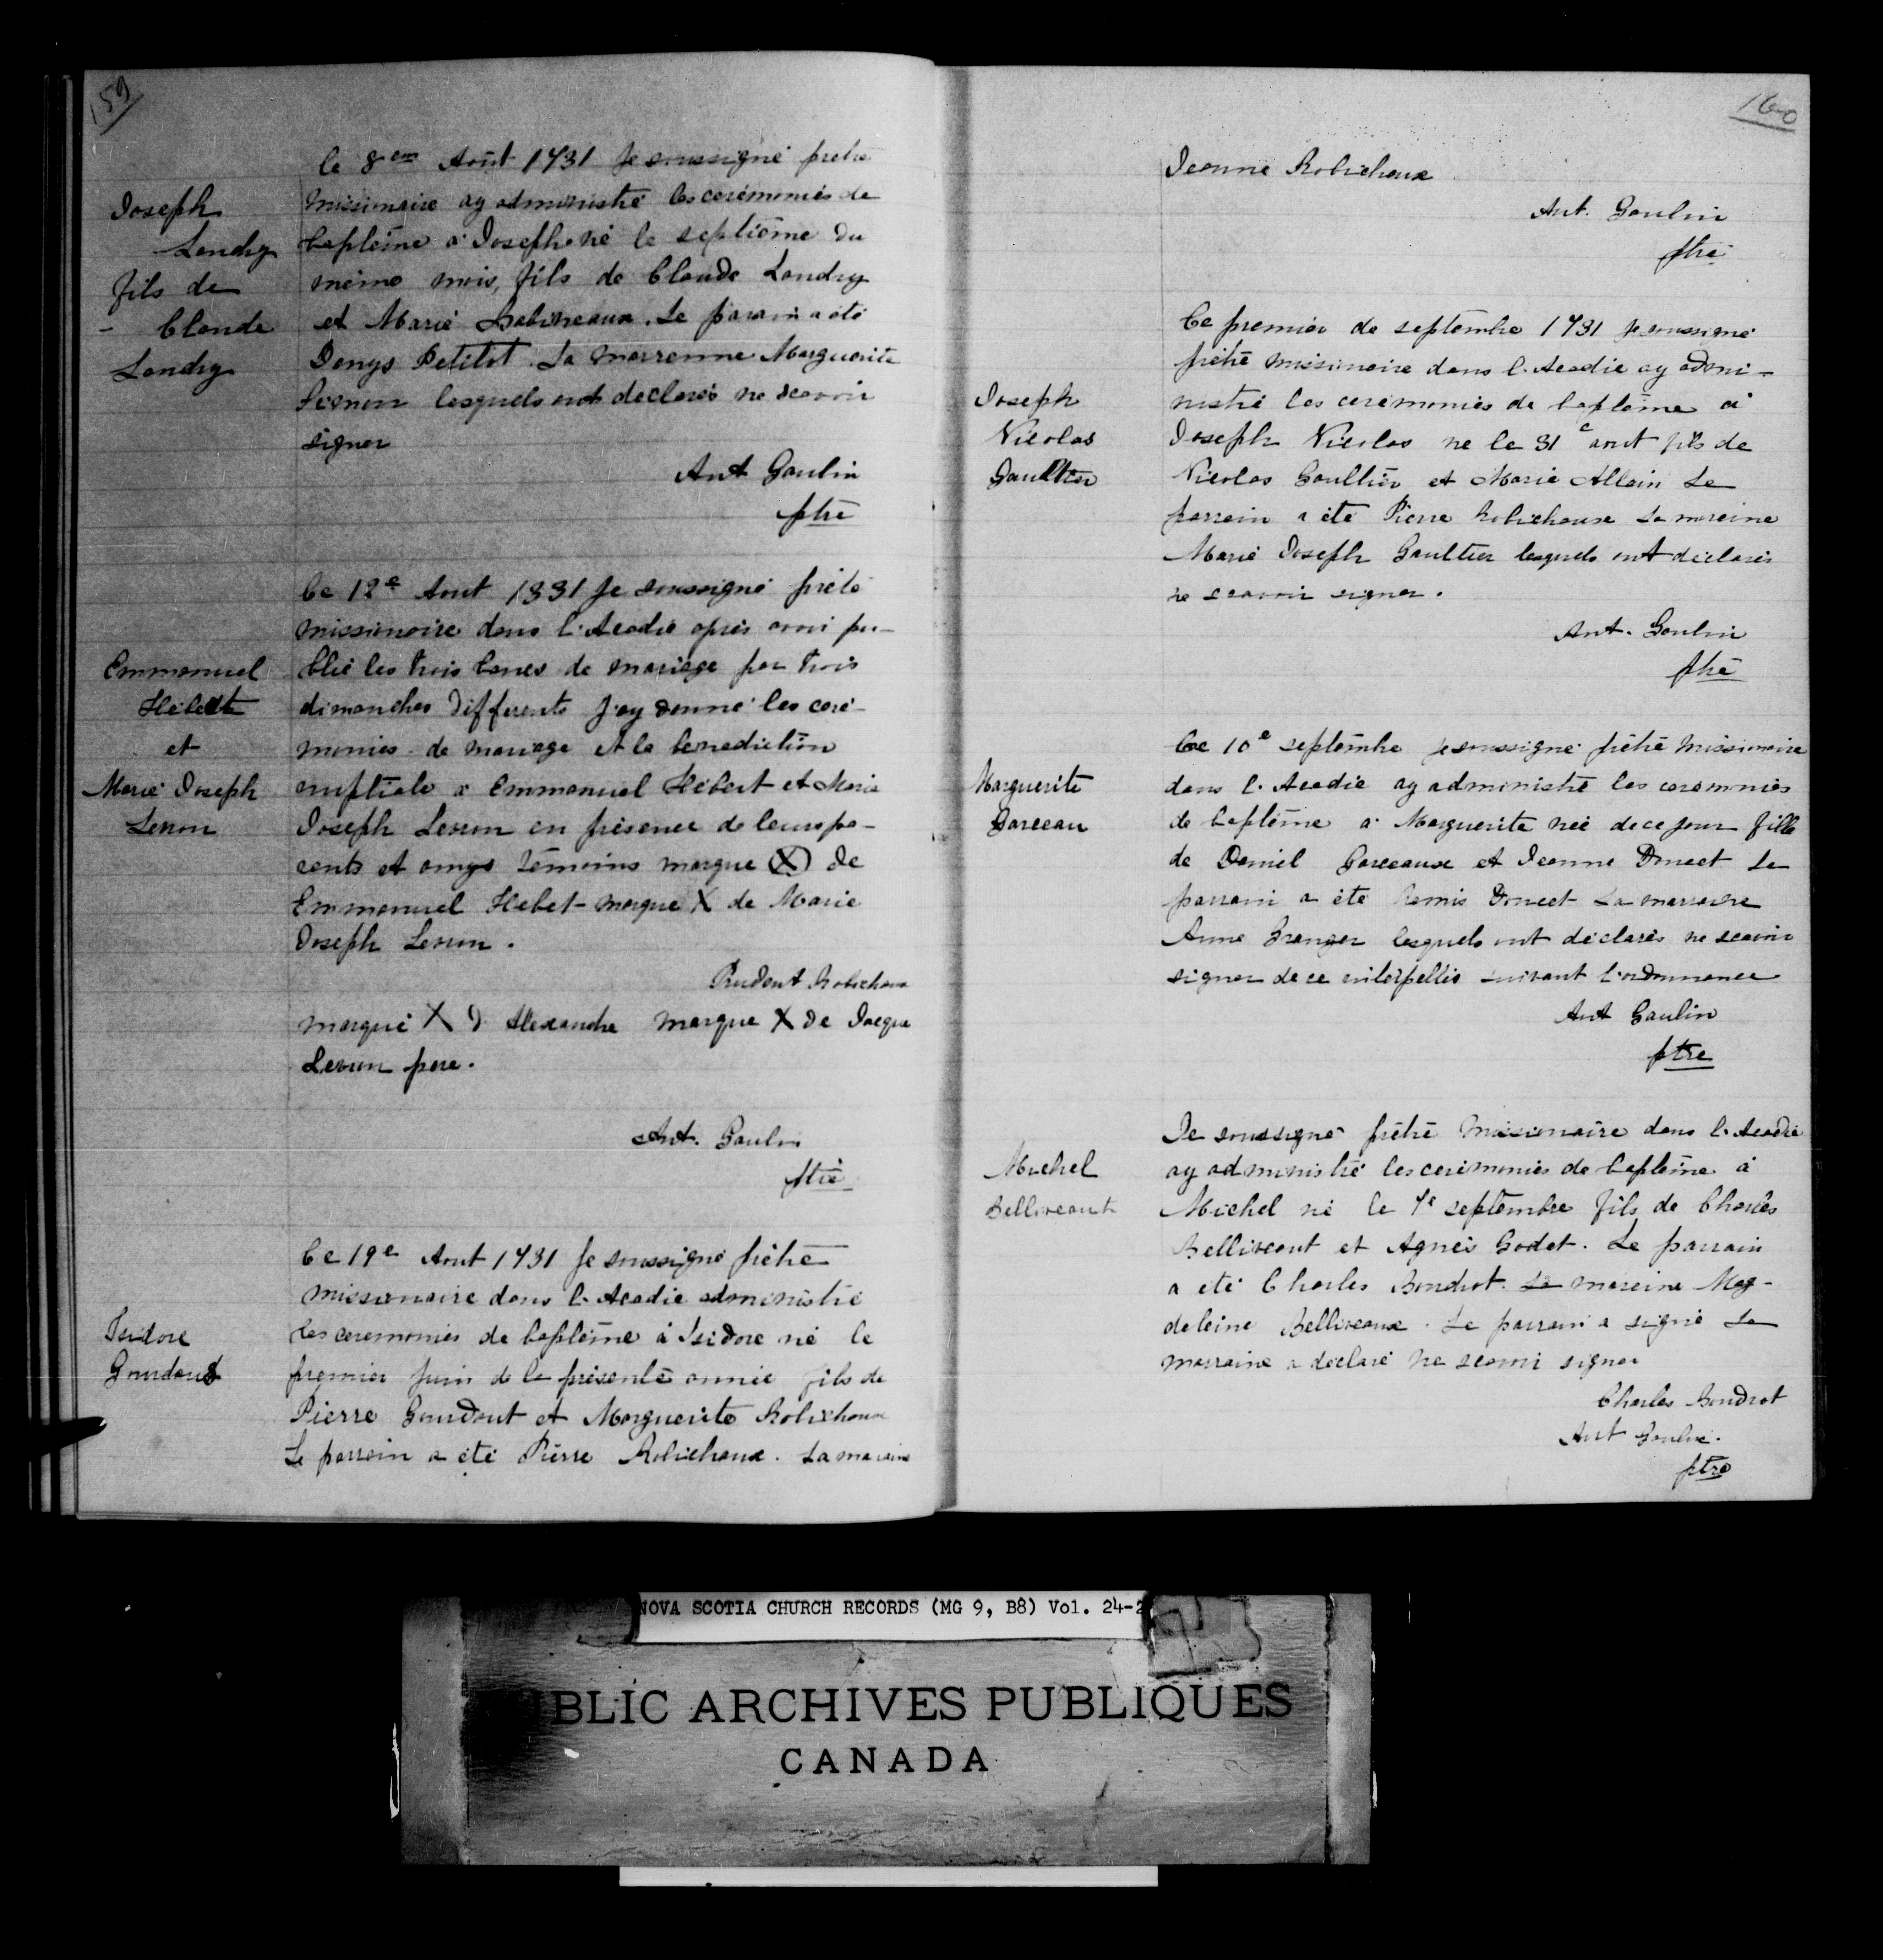 159
le 8em Août 1731 Je soussigné prétre
Joseph
Landry
fils de
- Claude
Landry
missionaire ay administré les cerémonies de
baptême à Joseph né le septième du
même mois, fils de Claude Landry
et Marie Babineaux. Le parain a été
Denys Petitot. La marrenne Marguerite
lesquels ont declarés ne scavoir
signer
Ant Gaulin
ptre
Ce 12e Aout 1331 Je soussigné prété
missionaire dans l'Acadie après avoi pu-
Emmanuel
Hebert
et
Marie Joseph
Leron
blié les trois bancs de mariage par trois
dimanches differents j'ay donné les céré-
monies de mariage et la benediction
nuptiale a Emmanuel Hébert et Marie
Joseph Leron en présence de leurs pa-
rents et amys témoins marque X de
Emmanuel Hebet marque X de Marie
Joseph Leron.
Prudent Robichaux
marque X d Alexandre marque X de Jacque
Leron pere.
Ant. Gaulin
ptre
Ce 19e Aout 1731 Je soussigné prétre
missionaire dans l'Acadie administré
Isidore
Gourdout
les ceremonies de baptême à Isidore né le
premier juin de la présente année fils de
Pierre Gourdout et Marguerite Robichaux
Le parrain a été Pierre Robichaux. La maraine
160
Jeanne Robichaux
Ant. Gaulin
ptre
Ce premier de septembre 1731 Je soussigné
prétre missionaire dans l'Acadie ay admi-
Joseph
Nicolas
Gaultier
nistré les ceremonies de baptême à
Joseph Nicolas ne le 31e aout fils de
Nicolas Gaultier et Marie Allain Le
parrain a été Pierre Robichaux La mareine
Marie Joseph Gaultier lesquels ont déclarés
ne scavoir signer.
Ant. Gaulin
ptre
Ce 10e septembre je soussigné prétre missionaire
Marguerite
Garceau
dans l'Acadie ay administré les ceremonies
de baptême à Marguerite née de ce jour fille
de Daniel Garceaux et Jeanne Doucet Le
parrain a été Remis Doucet La marraine
Anne Granger lesquels ont déclarés ne scavoir
signer de ce enterpellés suivant l'ordonnance
Ant Gaulin
ptre
Je soussigné prétre missionaire dans l'Acadie
Michel
Belliveaut
ay administré les ceremonies de baptême à
Michel né le 7e septembre fils de Charles
Belliveaut et Agnés Godet. Le parrain
a été Charles Boudrot. La mareine Mag-
deleine Belliveaux. Le parrain a signé La
marraine a déclaré ne scavoir signer
Charles Boudrot
Ant Gaulin.
ptre
NOVA SCOTIA CHURCH RECORDS (MG 9, B8) Vol. 24-2
BLIC ARCHIVES PUBLIQUES
CANADA